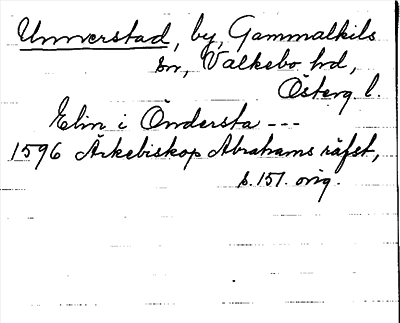 Unnerstad, by, Gammalkils
sn, Valkebo hd,
Österg. l.
Elin i Öndersta ---
1596 Ärkebiskop Abrahams räfst,
s. 151. orig.